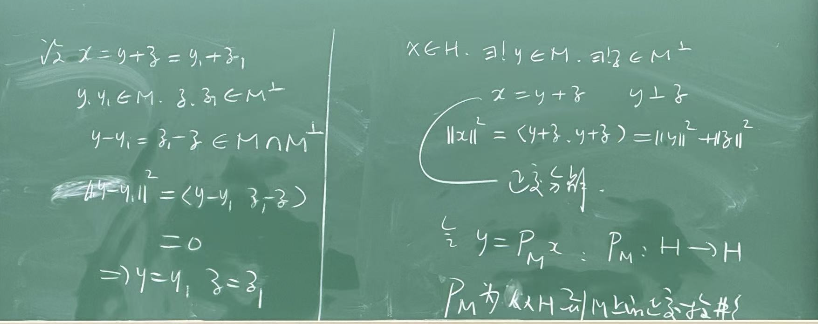 设 x=y+z=y₁+z₁
y.y₁∈M. z.z₁∈M^⊥
y-y₁=z₁-z∈M∩M^⊥
‖y-y₁‖²=(y-y₁ z₁-z)
=0
⇒y=y₁ z=z₁
x∈H. ∃!y∈M. ∃!z∈M^⊥
x=y+z y⊥z
‖x‖²=(y+z.y+z)=‖y‖²+‖z‖²
正交分解.
记 y=P_M x. P_M:H→H
P_M为从H到M上的正交投影